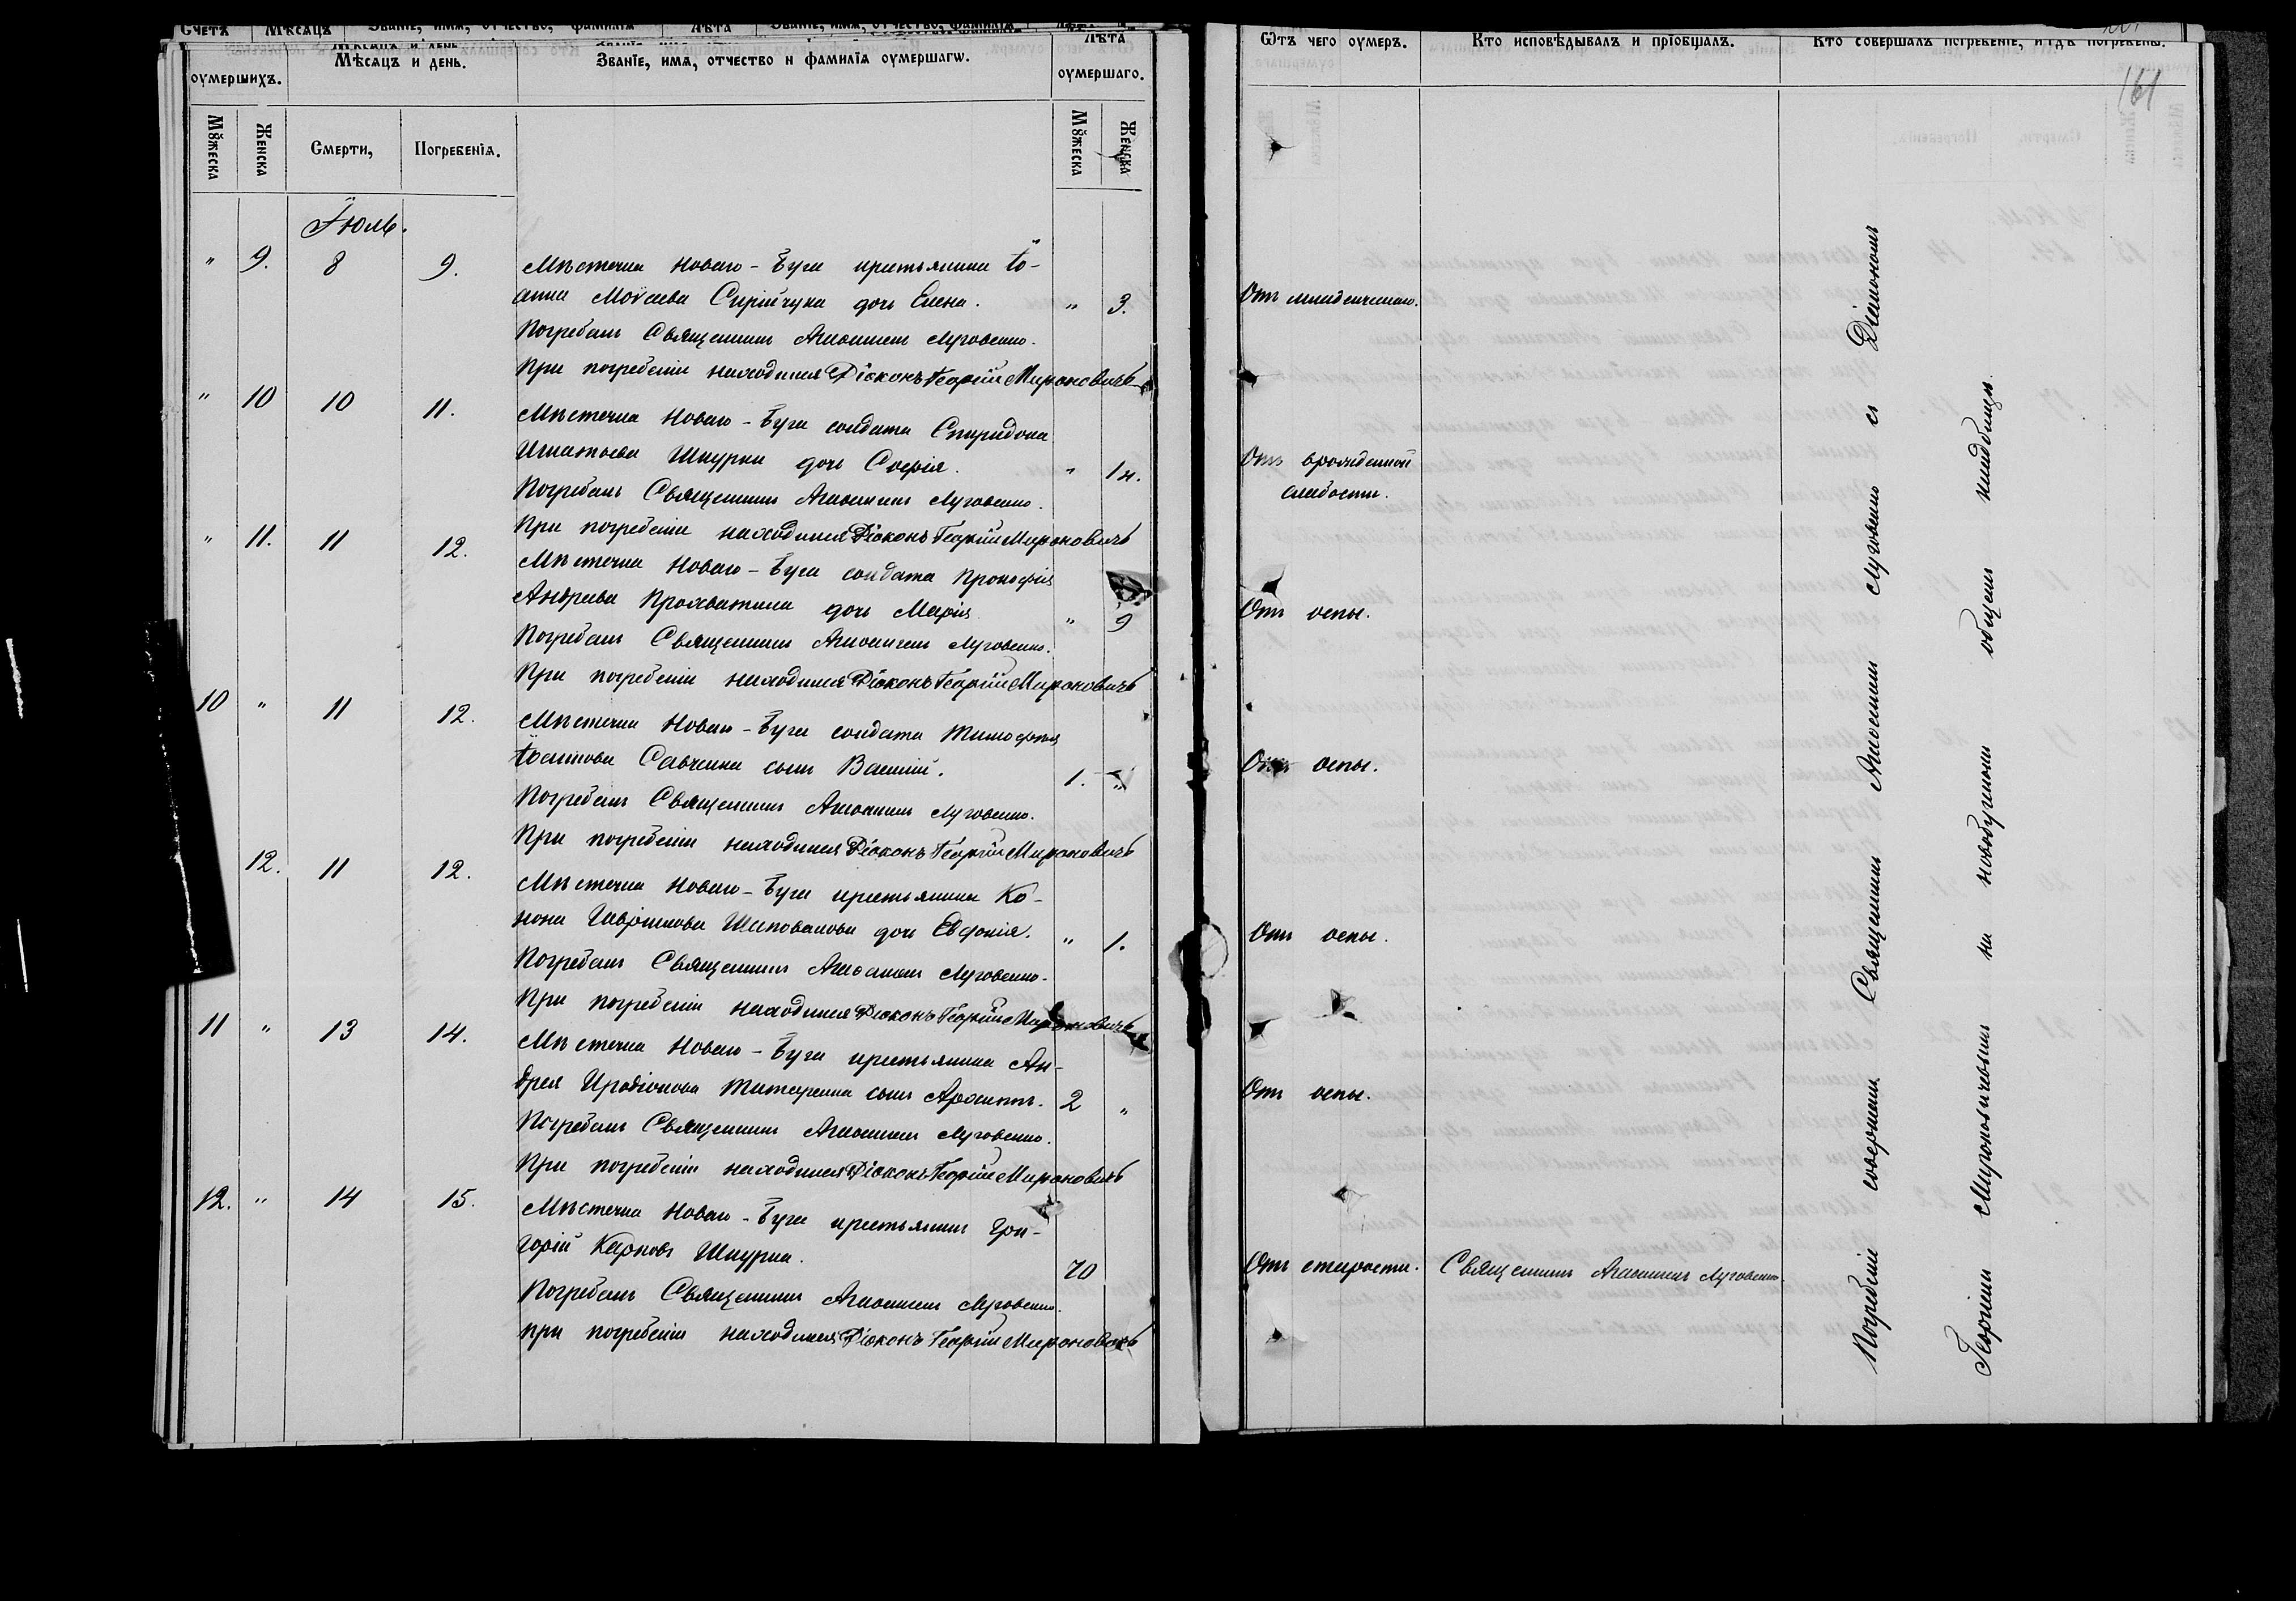 Счетъ Мѣсяцъ Званіе, имя, отчество, фамилія Лѣта
оумершихъ. Мѣсяцъ и день. Званіе, имя, отчество и фамилія оумершагѡ. Лѣта оумершаго.
Мꙋжеска Женска Смерти, Погребенія. Мꙋжеска Женска
Ѿтъ чего оумеръ. Кто исповѣдывалъ и пріобщалъ. Кто совершалъ погребеніе, и гдѣ погребены.
161
Іюль.
" 9. 8 9. Мѣстечка Новаго-Буга крестьянина Іо-
анна Моѵсеева Скрійчука дочь Елена. " 3. Отъ младенческаго.
Погребалъ Священникъ Аѳанасій Луговенко.
При погребеніи находился Діаконъ Георгій Мироновичъ
" 10 10 11. Мѣстечка Новаго-Буга солдата Спиридона
Игнатьева Шкурки дочь Софія. " 1н. Отъ врожденной
слабости.
Погребалъ Священникъ Луговенко.
При погребеніи находился Діаконъ Георгій Мироновичъ
" 11. 11 12. Мѣстечка Новаго-Буга солдата Прокофія
Андреева Прохватила дочь Марія " 9 Отъ оспы.
Погребалъ Священникъ Луговенко.
При погребеніи находился Діаконъ Георгій Мироновичъ
10 " 11 12. Мѣстечка Новаго-Буга солдата Тимофея
Савченка сынъ Василій. 1. " Отъ оспы.
Погребалъ Священникъ Луговенко.
При погребеніи находился Діаконъ Георгій Мироновичъ
12. 11 12. Мѣстечка Новаго-Буга крестьянина Ко-
нона Гавріилова Шаповалова дочь Евдокія. " 1. Отъ оспы.
Погребалъ Священникъ Луговенко.
При погребеніи находился Діаконъ Георгій Мироновичъ
11 " 13 14. Мѣстечка Новаго-Буга крестьянина Ан-
дрея Иродіонова Титаренка сынъ Архиппъ. 2 " Отъ оспы.
Погребалъ Священникъ Луговенко.
При погребеніи находился Діаконъ Георгій Мироновичъ
12. " 14 15. Мѣстечка Новаго-Буга крестьянинъ Гри-
горій Карповъ Шкурка. 70 Отъ старости. Священникъ Луговенко.
Погребалъ Священникъ Луговенко.
при погребеніи находился Діаконъ Георгій Мироновичъ
Погребеніе совершалъ Священникъ Луговенко съ Діакономъ
Георгіемъ Мироновичевымъ на новобугскомъ общемъ кладбищѣ.